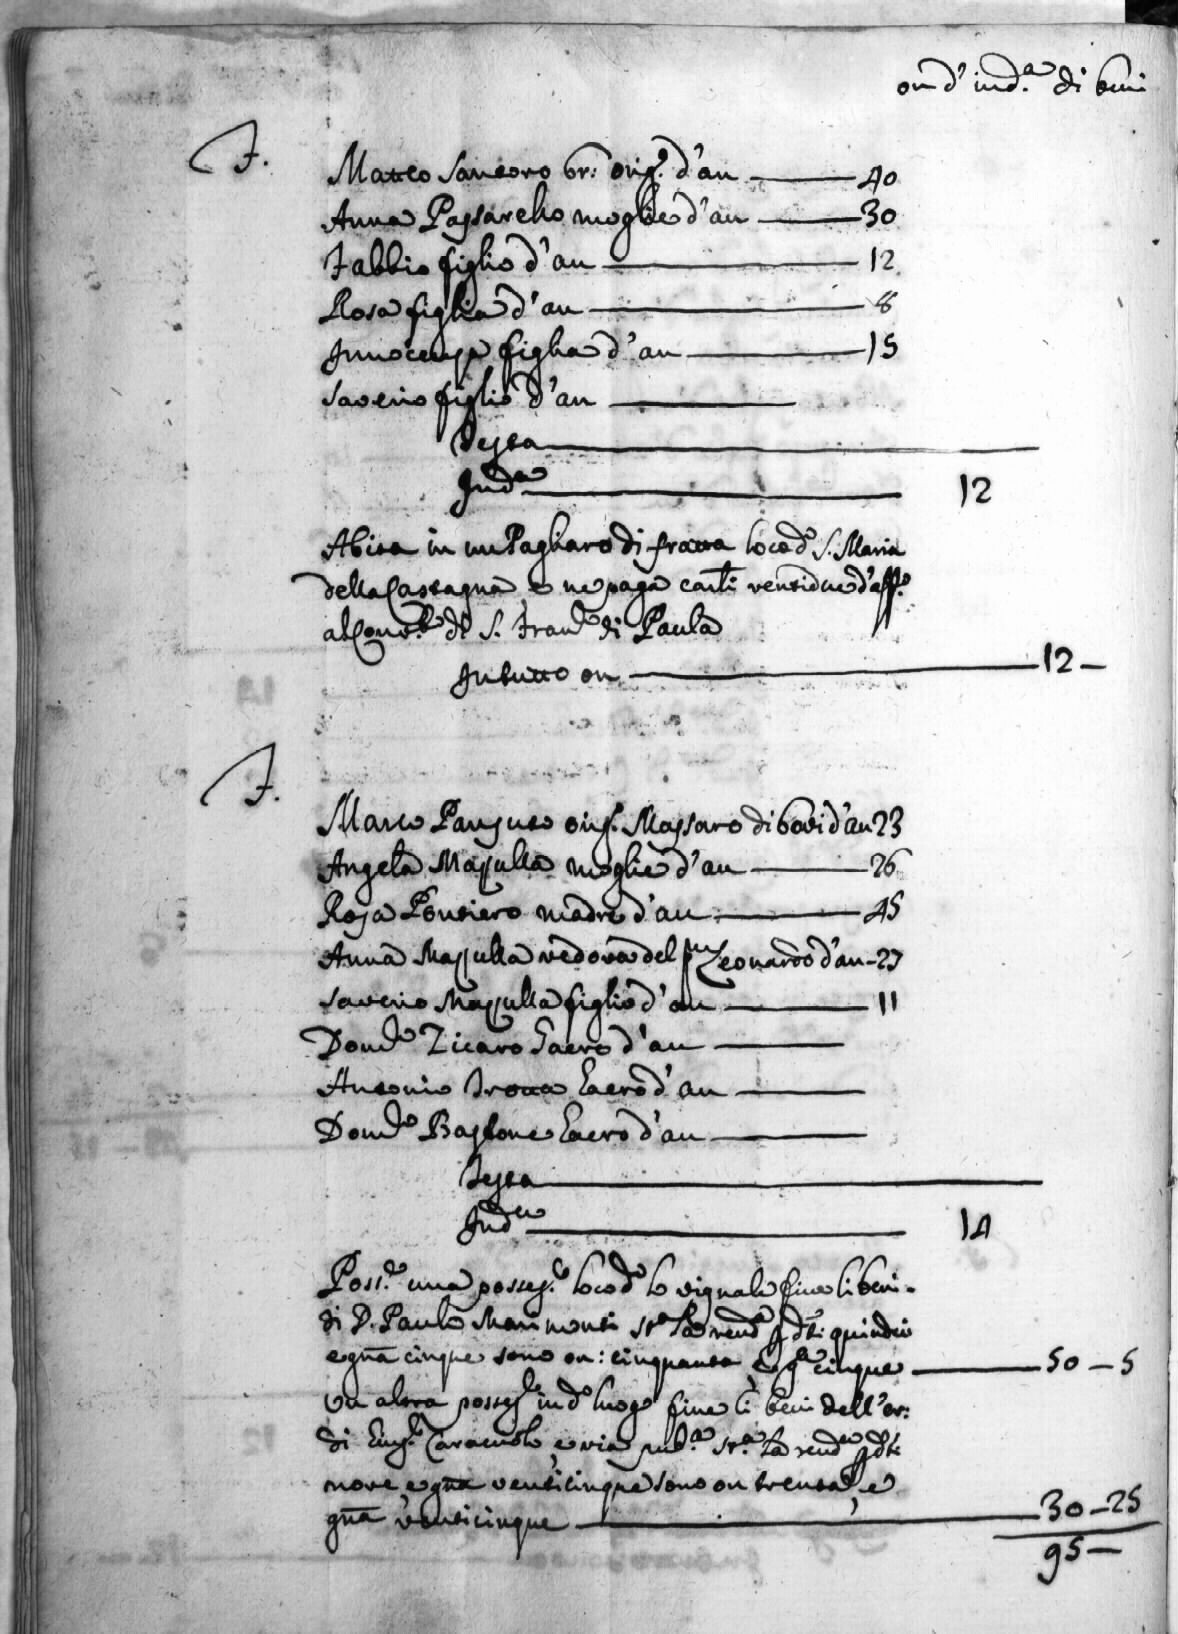 on d' ind.a di beni
F.
Matteo Santoro br: orig.e d'an 40
Anna Passarello moglie d'an 30
Fabbio figlio d'an 12
Rosa figlia d'an 8
Innocenza figlia d'an 15
Saverio figlio d'an
Testa
Ind.a 12
Abita in un Pagliaro di fratta loco d.o S. Maria
della Castagna, e ne paga carli ventidue d'aff.o
al Conv.to di S. Fran.co di Paula
In tutto on 12
F.
Marco orig.e Massaro di bovi d'an 23
Angela Mazzulla moglie d'an 26
Rosa Pontiero madre d'an 45
Anna Mazzulla vedova del qm Leonardo d'an 27
Saverio Mazzulla figlio d'an 11
Dom.co Zicaro Garzo d'an
Antonio d'an
Dom.co Bastone d'an
Testa
Ind.a 14
Poss.e una posses.e loco d.o lo vignale fine li beni
di D. Paulo Marimonti st.a la rend.a p d.ti quindici
e gna cinque sono on: cinquanta, e g.a cinque 50 – 5
Un altra posses.e in d.o luogo fine li beni dell'er:
di e via pub.a st.a la rend.a p d.ti
nove e gna venticinque sono on trenta, e
gna venticinque 30 – 25
95 –